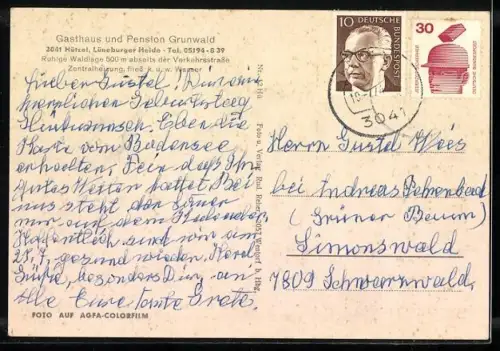 Gasthaus und Pension Grunwald
3041 Hützel, Lüneburger Heide - Tel. 05194-839
Ruhige Waldlage 500 m abseits der Verkehrsstraße
Zentralheizung, fließ. k. u. w. Wasser
Lieber Gustel!
herzlichen Geburtstag
Glückwunsch. Eben die
Karte vom Bodensee
erhalten. Fein daß Ihr
gutes Wetter hattet. Bei
uns steht der
nur auf dem
Hoffentlich sind wir am
gesund wieder. Herzl.
Grüße, besonders Dir, an
alle Eure Tante Grete.
FOTO AUF AGFA-COLORFILM
Foto u. Verlag Rud. Reher
10 DEUTSCHE BUNDESPOST
30 DEUTSCHE BUNDESPOST
3041
Herrn Gustel Weis
bei Andreas Fehrenbach
(Grüner Baum)
Simonswald
7809 Schwarzwald